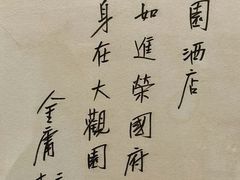 園酒店
如進榮國府
身在大觀園
金庸